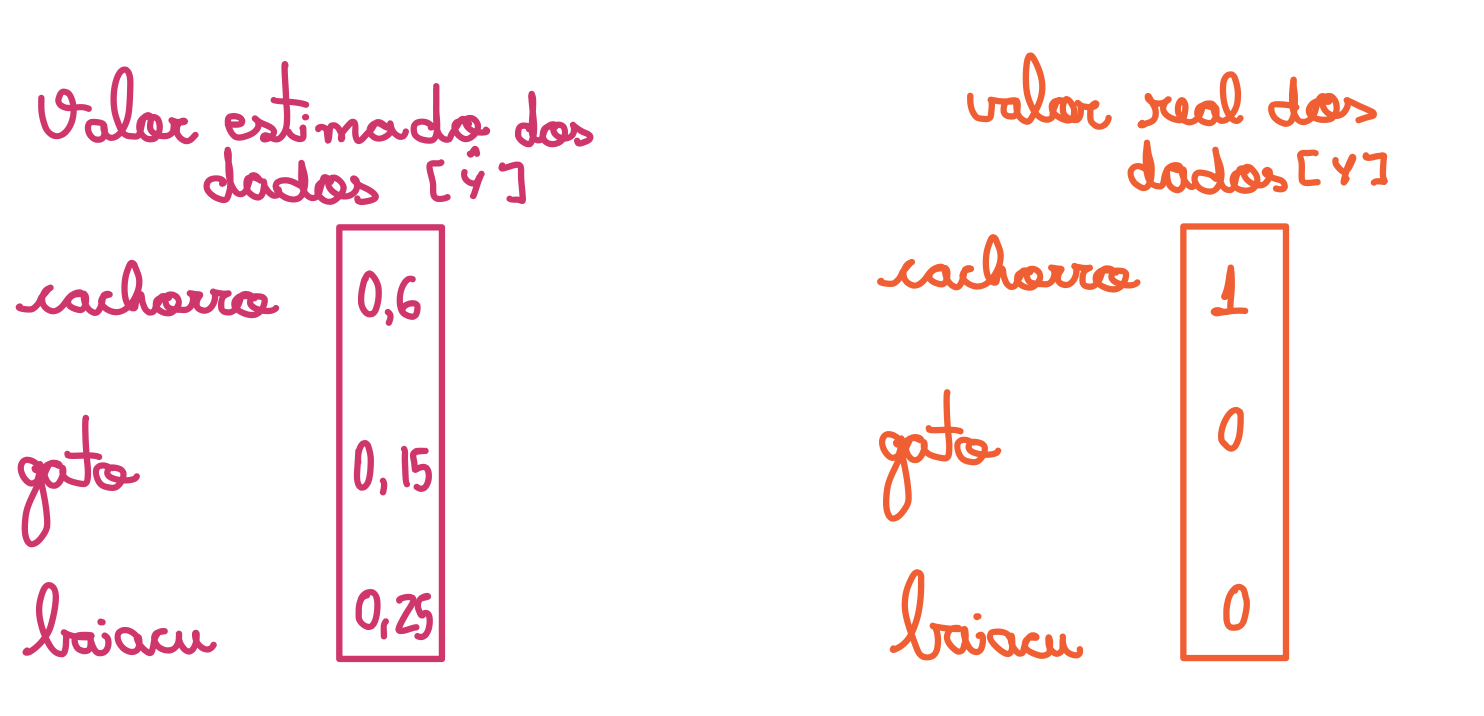 Valor estimado dos
dados [Ŷ]
cachorro 0,6
gato 0,15
baiacu 0,25
valor real dos
dados [Y]
cachorro 1
gato 0
baiacu 0